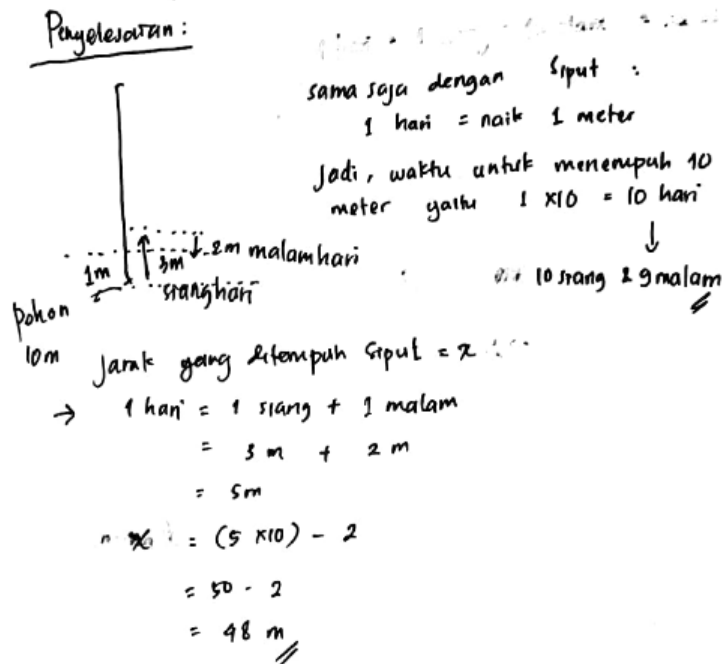 Penyelesaian:
sama saja dengan siput :
1 hari = naik 1 meter
Jadi, waktu untuk menempuh 10
meter yaitu 1 x10 = 10 hari
↓
10 siang & 9 malam
2m malam hari
3m
1m
siang hari
pohon
10m
Jarak yang ditempuh siput = x
→ 1 hari = 1 siang + 1 malam
= 3 m + 2 m
= 5m
x = (5 x10) - 2
= 50 - 2
= 48 m